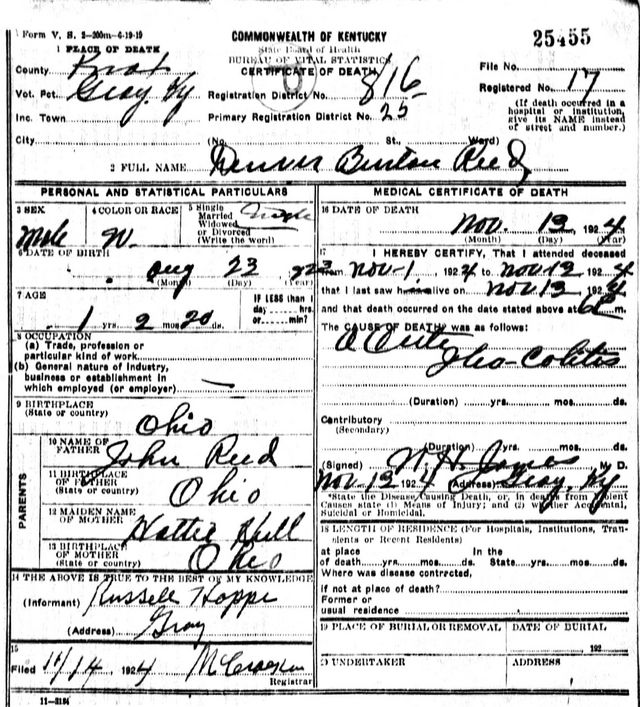 Form V. S. 2-200m-6-19-19
COMMONWEALTH OF KENTUCKY
State Board of Health
BUREAU OF VITAL STATISTICS
CERTIFICATE OF DEATH
25455
1 PLACE OF DEATH
County Knox
Vot. Pct. Gray, Ky
Inc. Town
City
Registration District No. 816
Primary Registration District No. 25
File No.
Registered No. 17
(If death occurred in a
hospital or institution,
give its NAME instead
of street and number.)
(No. St., Ward)
2 FULL NAME Denver Burton Reed
PERSONAL AND STATISTICAL PARTICULARS
3 SEX
Male
4 COLOR OR RACE
W.
5 Single
Married
Widowed
or Divorced
(Write the word)
Single
6 DATE OF BIRTH
Aug 23
(Month) (Day) (Year)
7 AGE
1 yrs. 2 mos 20 ds.
IF LESS than 1
day ----- hrs.
or ----- min?
8 OCCUPATION
(a) Trade, profession or
particular kind of work
(b) General nature of industry,
business or establishment in
which employed (or employer)
9 BIRTHPLACE
(State or country)
Ohio
PARENTS
10 NAME OF
FATHER
John Reed
11 BIRTHPLACE
OF FATHER
(State or country)
Ohio
12 MAIDEN NAME
OF MOTHER
Hattie Hill
13 BIRTHPLACE
OF MOTHER
(State or country)
Ohio
14 THE ABOVE IS TRUE TO THE BEST OF MY KNOWLEDGE
(Informant) Russell Hopper
(Address) Gray
15
Filed 11/14, 1924
Registrar
11-3184
MEDICAL CERTIFICATE OF DEATH
16 DATE OF DEATH
Nov. 13 1924
(Month) (Day) (Year)
17 I HEREBY CERTIFY, That I attended deceased
from Nov-1, 1924 to Nov 12 1924
that I last saw h alive on Nov 13 1924
and that death occurred on the date stated above at m.
The CAUSE OF DEATH was as follows:
Acute
Ileo-Colitis
(Duration) yrs. mos. ds.
Contributory
(Secondary)
(Duration) yrs. mos. ds.
(Signed) W. H. James M. D.
Nov 13 1924 (Address) Gray, Ky
*State the Disease Causing Death, or, in deaths from Violent
Causes state (1) Means of Injury; and (2) Whether Accidental,
Suicidal or Homicidal.
18 LENGTH OF RESIDENCE (For Hospitals, Institutions, Tran-
sients or Recent Residents)
at place In the
of death yrs. mos. ds. State yrs. mos. ds.
Where was disease contracted,
if not at place of death?
Former or
usual residence
19 PLACE OF BURIAL OR REMOVAL
DATE OF BURIAL
192
UNDERTAKER
ADDRESS